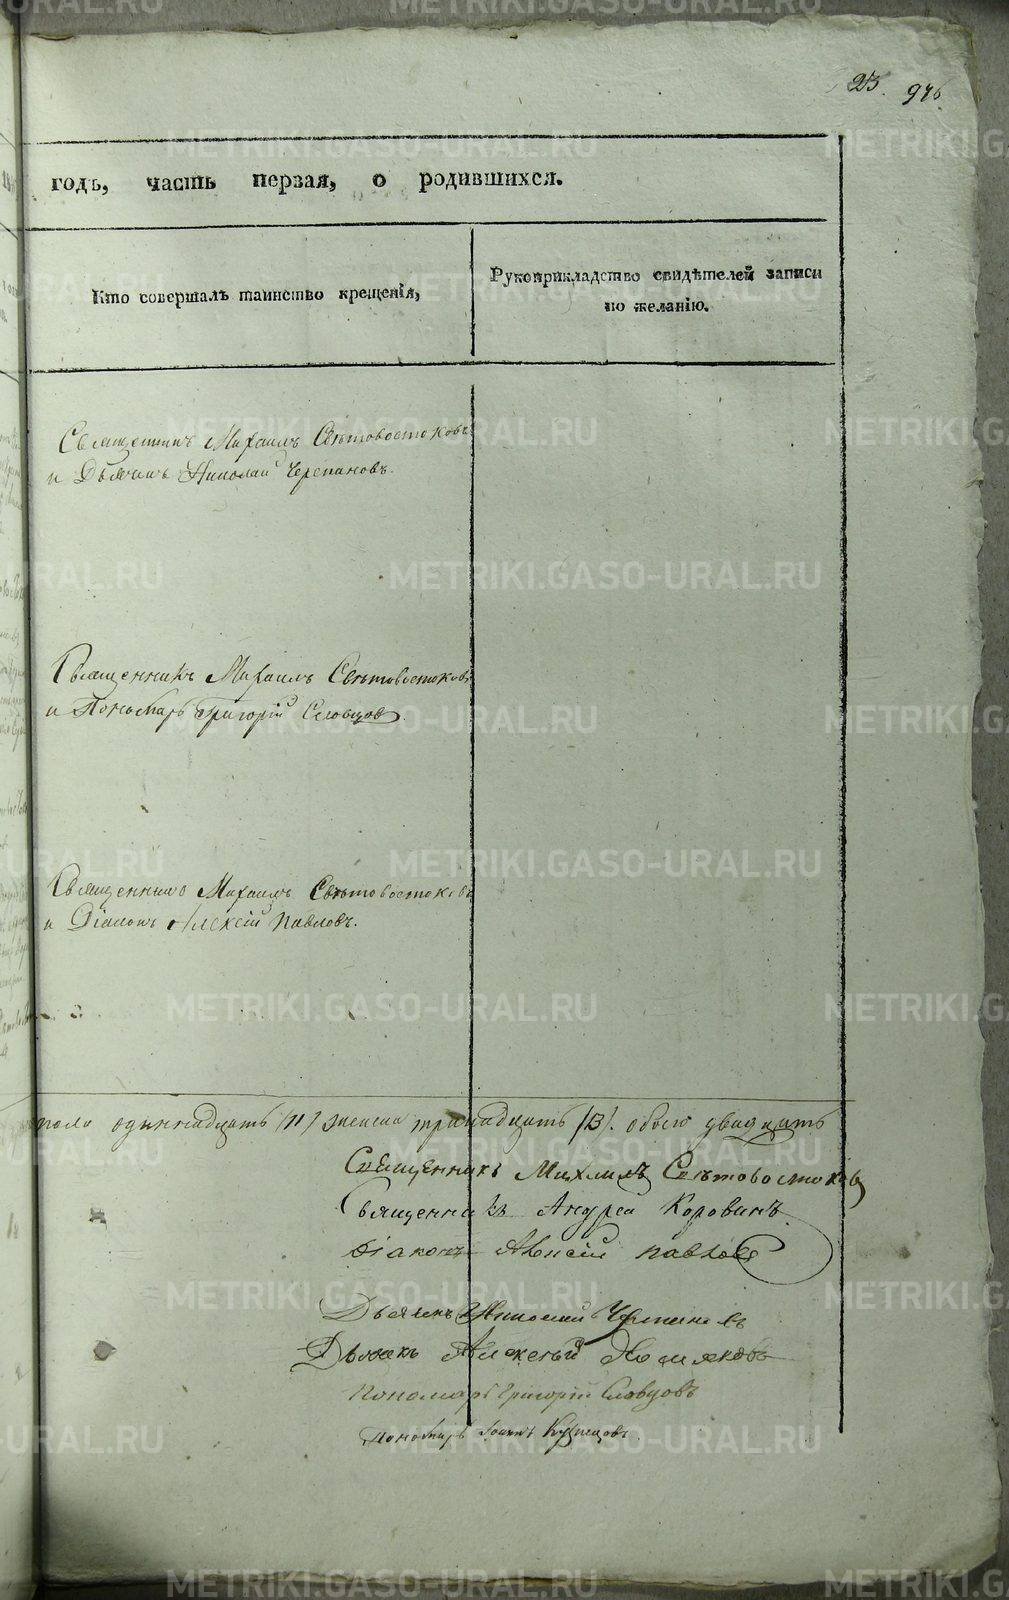 23. 976
годъ, часть первая, о родившихся.
Кто совершалъ таинство крещенія,
Рукоприкладство свидѣтелей записи
по желанію.
Священникъ Михаилъ Свѣтовостоковъ
и Дьячекъ Николай Черепановъ.
Священникъ Михаилъ Свѣтовостоковъ
и Пономарь Григорій Словцов.
Священникъ Михаилъ Свѣтовостоковъ
и Діаконъ Алексій Павловъ.
пола одиннадцать /11/ женска тринадцать /13/. обоего двадцать
Священникъ Михаилъ Свѣтовостоковъ
Священникъ Андрей Коровинъ
Діаконъ Алексій Павловъ
Дьячекъ Николай Черепановъ
Дьячекъ Алексѣй Хомяковъ
Пономарь Григорій Словцовъ
Пономарь Іоаннъ Кузнецовъ.
METRIKI.GASO-URAL.RU